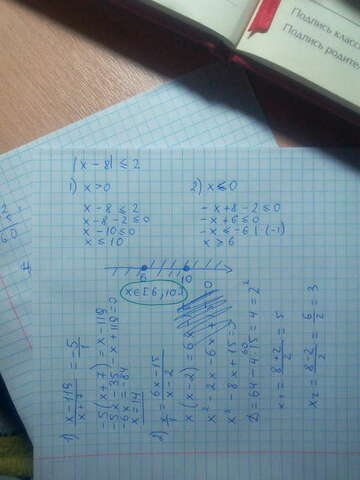 Подпись класс
Подпись родите
|x - 8| ≤ 2
1) x > 0
x - 8 ≤ 2
x - 8 - 2 ≤ 0
x - 10 ≤ 0
x ≤ 10
2) x ≤ 0
- x + 8 - 2 ≤ 0
- x + 6 ≤ 0
- x ≤ -6 | (-1)
x ≥ 6
6 10
x ∈ [6, 10]
1) x - 119 / x + 7 = -5 / 1
-5(x + 7) = x - 119
-5x - 35 - x + 119 = 0
-6x = -84
x = 14
2) x / 1 = 6x - 15 / x - 2
x(x - 2) = 6x - 15
x² - 2x - 6x + 15 = 0
x² - 8x + 15 = 0
D = 64 - 4·15 = 4 = 2²
60
x₁ = 8 + 2 / 2 = 5
x₂ = 8 - 2 / 2 = 6 / 2 = 3